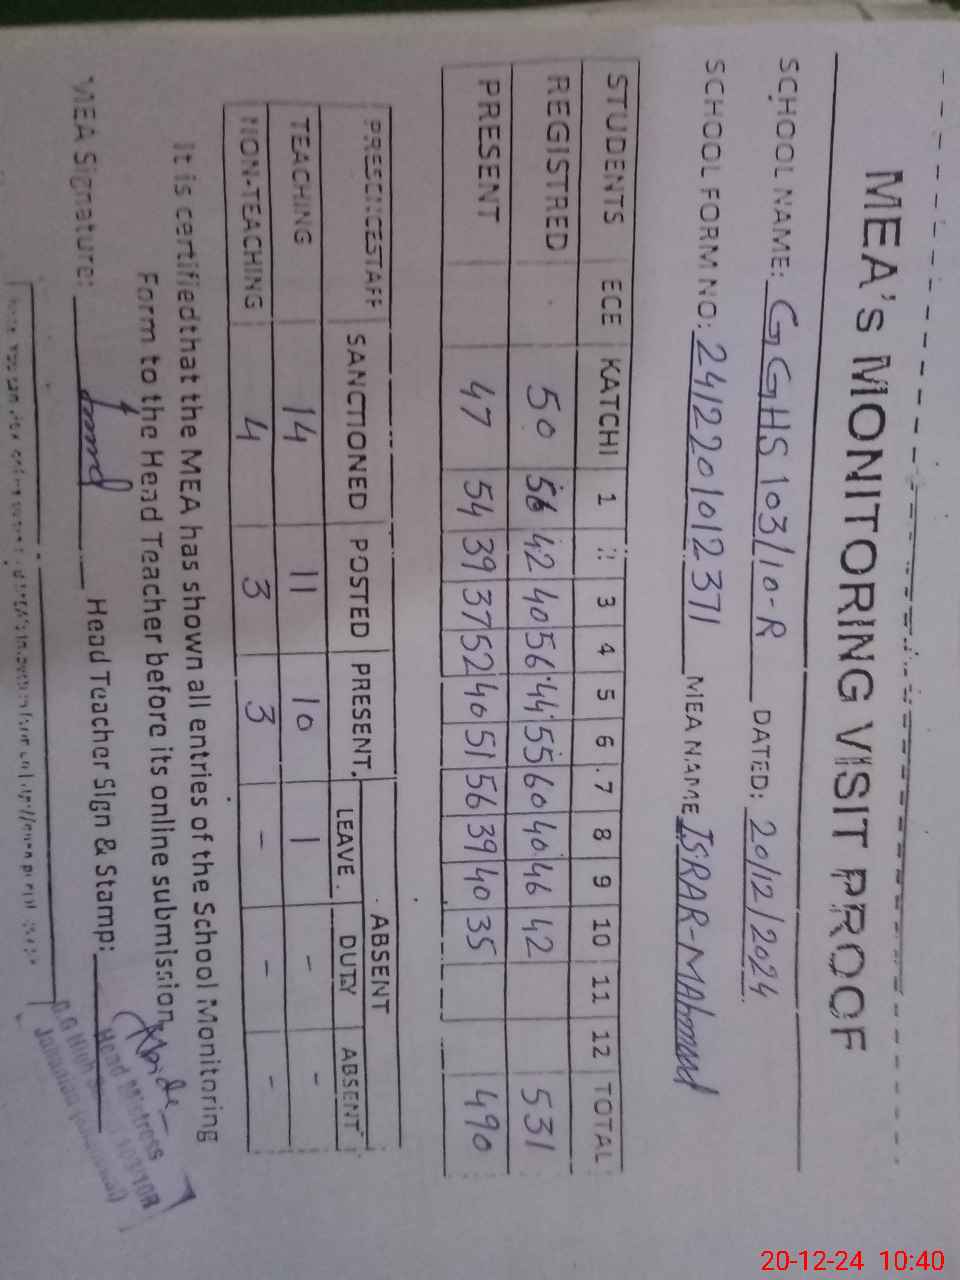 MEA'S MONITORING VISIT PROOF
SCHOOL NAME: GGHS 103/10-R DATED: 20/12/2024
SCHOOL FORM NO: 2412201012371 MEA NAME ISRAR-MAhmud
STUDENTS ECE KATCHI 1 2 3 4 5 6 7 8 9 10 11 12 TOTAL
REGISTRED 50 56 42 40 56 44 55 60 40 46 42 531
PRESENT 47 54 39 37 52 40 51 56 39 40 35 490
PRESCENCESTAFF SANCTIONED POSTED PRESENT ABSENT
LEAVE DUTY ABSENT
TEACHING 14 11 10 1 - -
NON-TEACHING 4 3 3 - - -
It is certifiedthat the MEA has shown all entries of the School Monitoring
Form to the Head Teacher before its online submission.
MEA Signature: Head Teacher Sign & Stamp:
Head Mistress
G.G High 103/10R
Jahanian
20-12-24 10:40